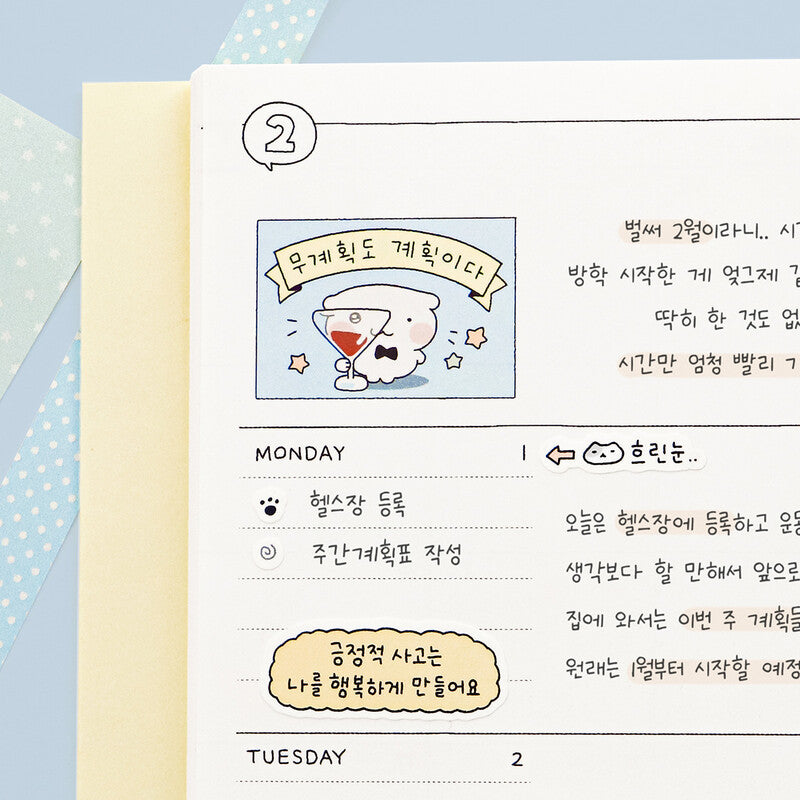 2
무계획도 계획이다
벌써 2월이라니..
방학 시작한 게 엊그제
딱히 한 것도
시간만 엄청 빨리
MONDAY 1
흐린눈..
헬스장 등록
주간계획표 작성
오늘은 헬스장에 등록하고
생각보다 할 만해서 앞으로
집에 와서는 이번 주
원래는 1월부터 시작할
긍정적 사고는
나를 행복하게 만들어요
TUESDAY 2